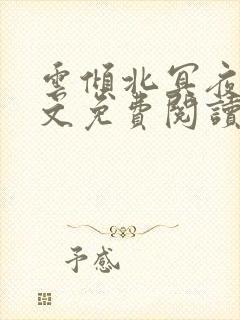 雲傾北冥夜
文免費閱讀
予感